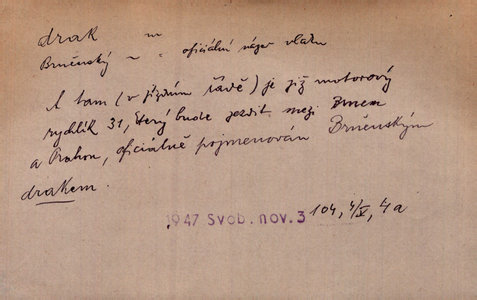 drak m
Brněnský ~ - oficiální název vlaku
A tam (v jízdním řádě) je již motorový
rychlík 31, který bude jezdit mezi Brnem
a Prahou, oficiálně pojmenován Brněnským
drakem.
1947 Svob. nov. 3 104, 4/V, 4a